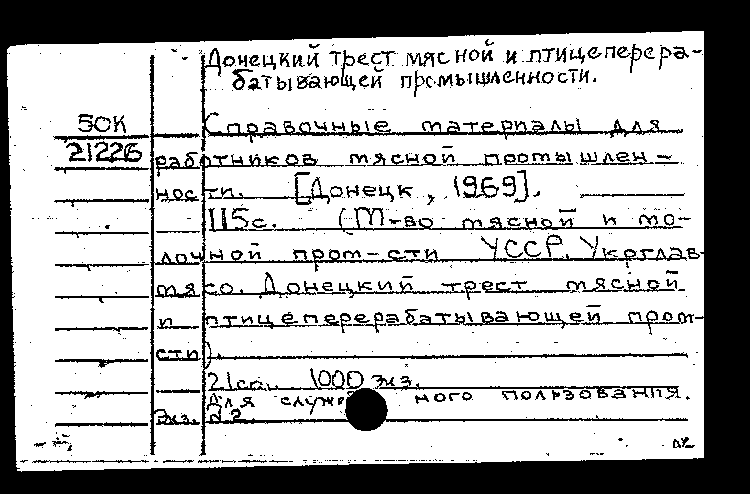 Донецкий трест мясной и птицеперера-
батывающей промышленности.
50К
21226
Справочные материалы для
работников мясной промышлен-
ности. [Донецк, 1969].
115с. (М-во мясной и мо-
лочной пром-сти УССР. Укрглав-
мясо. Донецкий трест мясной
и птицеперерабатывающей пром-
сти).
21см. 1000 экз.
Для служе ного пользования.
Экз. №2.